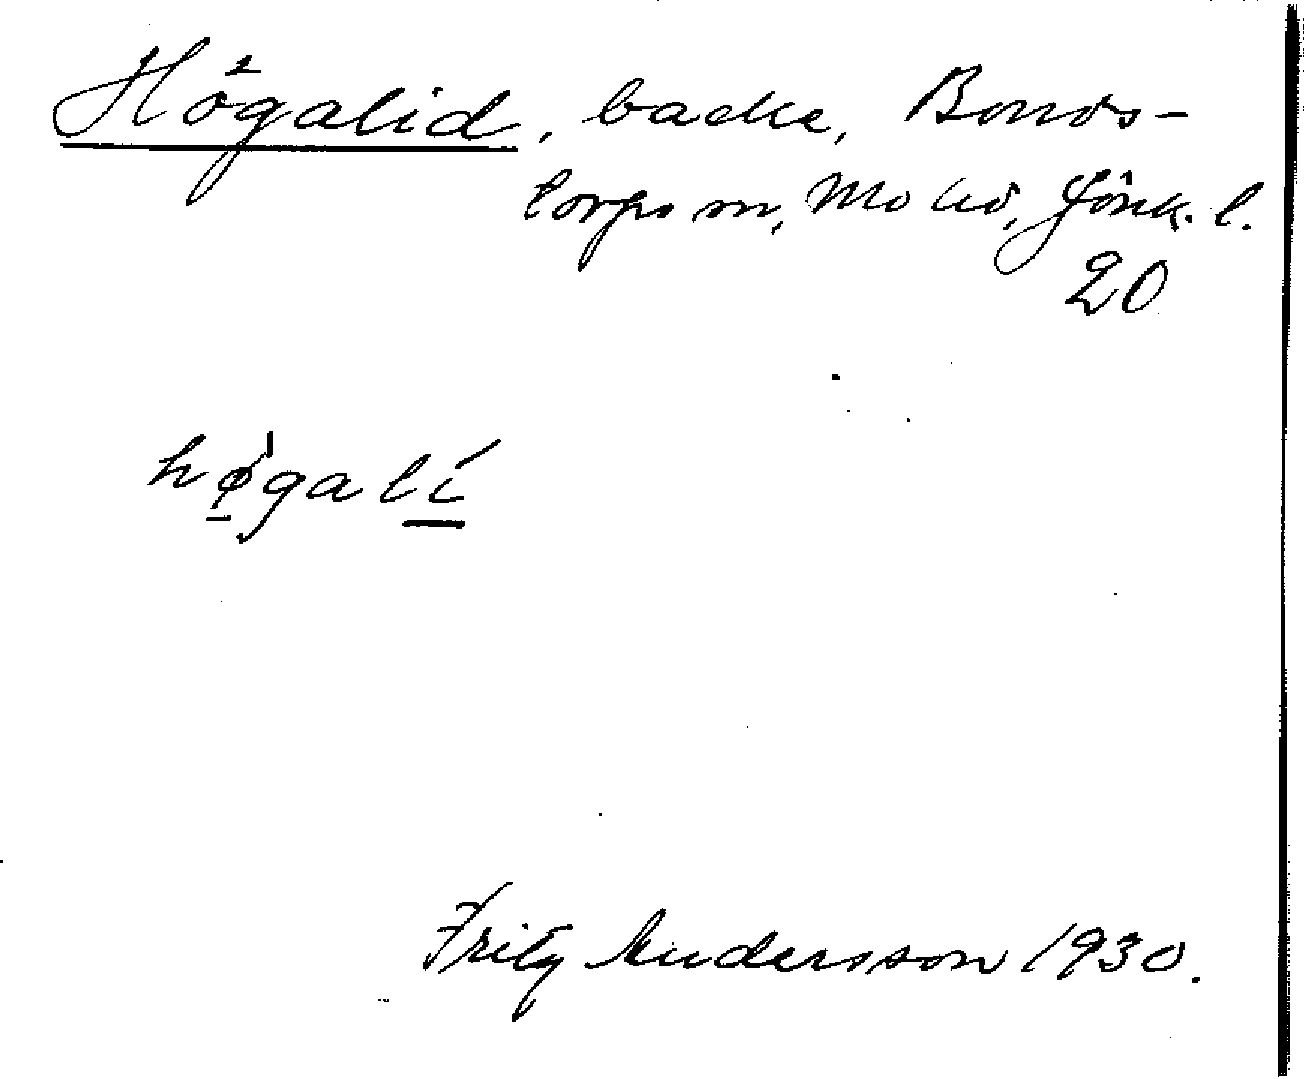 Högalid, backe, Bonds-
torps sn, Mo hd, Jönk. l.
20
hø̱̍galí̱
Fritz Andersson 1930.